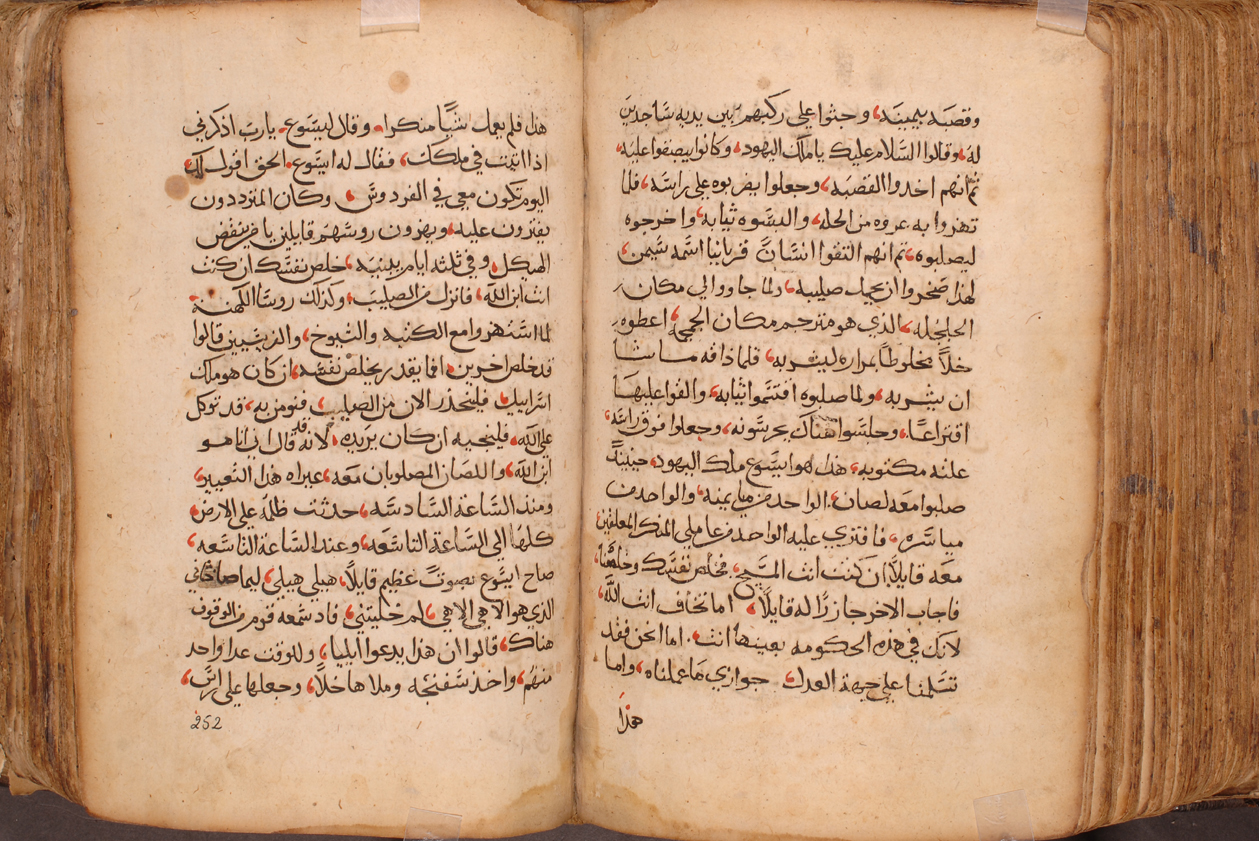 وقصبه بيمينه، وجثوا على ركبهم بين يديه ساجدين
له، وقالوا السلام عليك يا ملك اليهود، وكانوا يبصقوا عليه،
ثم انهم اخدوا القصبه، وجعلوا يضربوه على راسه، فلما
تهزوا به عروه من الحله، والبسوه ثيابه، واخرجوه
ليصلبوه، ثم انهم التقوا انسانً قريانيا اسمه سيمن،
لهذا سخروا ان يحمل صليبه، ولما جاوو الى مكان
الجلجله، الذي هو مترجم مكان الجمجمه، اعطوه
خلاً مخلوطاً بمراره ليشربه، فلما ذاقه ما شا
ان يشربه، ولما صلبوه اقتسموا ثيابه، والقوا عليها
اقتراعًا، وجلسوا هناك يحرسونه، وجعلوا فوق راسه
علته مكتوبه، هذا هو ايسوع ملك اليهود، حينيدٍ
صلبوا معه لصان، الواحد من ميامينه، والواحد من
مياسره، فافتري عليه الواحد من عاملي المنكر المعلقين
معه قايلاً، ان كنت انت المسيح، فخلص نفسك وخلصنا،
فاجاب الاخر جازرًا له قايلاً، اما تخاف انت الله،
لانك في هذه الحكومه بعينها انت، اما نحن فقد
تسلمنا على جهة العدل، جوازي ما عملناه، واما
هذا
هذا فلم يعمل شيًا منكرا، وقال ليسوع، يارب اذكرني
اذا اتيت في ملكك، فقال له ايسوع، الحق اقول لك،
اليوم تكون معي في الفردوس، وكان المترددون
يفترون عليه، ويهزون روسهم قايلين يا من ينقض
الهيكل، وفي ثلثه ايام يبنيه، خلص نفسك ان كنت
انت ابن الله، فانزل من الصليب، وكذلك روسا الكهنة
لما استهزوا مع الكتبه والشيوخ، والفريسيين قالوا
قد خلص اخرين، افما يقدر يخلص نفسه، ان كان هو ملك
اسراييل، فلينحدر الان من الصليب فنومن به، قد توكل
على الله، فلينجيه ان كان يريده، لانه قد قال اني انا هو
ابن الله، واللصان المصلوبان معه، عيراه هذا التعيير،
ومنذ الساعة السادسه، حدثت ظلمه على الارض،
كلها الى الساعة التاسعه، وعند الساعة التاسعه،
صاح ايسوع بصوتً عظيم قايلاً، هيلي هيلي، ليما صاختاني
الذي هو الاهي الاهي، لم خليتني، فاد سمعه قوم من الوقوف
هناك، قالوا ان هذا يدعوا ايليا، وللوقت عدا واحد
منهم، واخذ سفنجه وملاها خلاً، وجعلها على
252